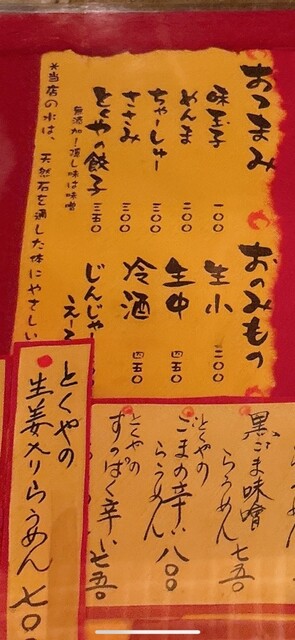 おつまみ
味玉子 一〇〇
めんま 二〇〇
ちゃーしゅー 三〇〇
ささみ 三〇〇
とくやの餃子 三五〇
無添加!隠し味は味噌
※当店の水は、天然石を通した体にやさしい
おのみもの
生小 二〇〇
生中 四五〇
冷酒 四五〇
じんじゃー
えー
黒ごま味噌
らうめん 七五〇
とくやの
ごまの辛い
らうめん 八〇〇
とくやの
すっぱく辛い 七五〇
とくやの
生姜入りらうめん 七〇